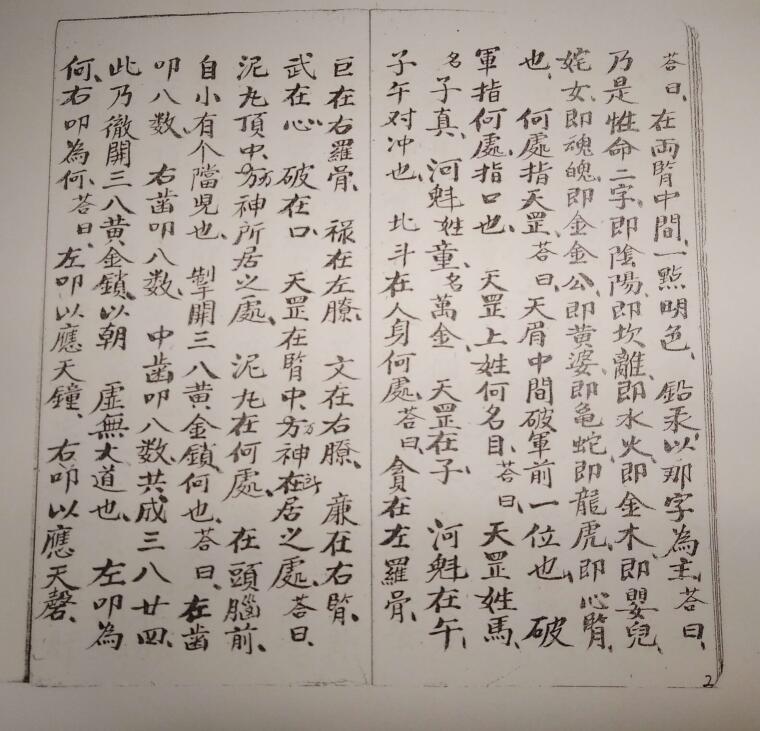 荅曰、在両腎中間、一點明色、鉛汞、以那字為主、荅曰、
乃是性命二字、即陰陽、即坎離、即水火、即金木、即嬰兒、
姹女、即魂魄、即金金公、即黄婆、即亀蛇、即龍虎、即心腎、
也、何處指天罡、荅曰、天眉中間破軍前一位也、破
軍指何處、指口也、天罡上姓何名目、荅曰、天罡姓馬、
名子真、河魁姓童、名萬金、天罡在子、河魁在午、
子午对冲也、北斗在人身何處、荅曰、貪在左羅骨、
巨在右羅骨、禄在左膫、文在右膫、亷在右腎、
武在心、破在口、天罡在腎中、方万神在斗居之處、荅曰、
泥丸頂中、方万神所居之處、泥丸在何處、在頭腦前、
自小有个隌児也、掣開三八黄金鎖、何也、荅曰、在齒
叩八数、右歯叩八数、中歯叩八数、共成三八廿四、
此乃徹開三八黄金鎖、以朝虚無大道也、左叩為
何、右叩為何、荅曰、左叩以應天鐘、右叩以應天磬、
2